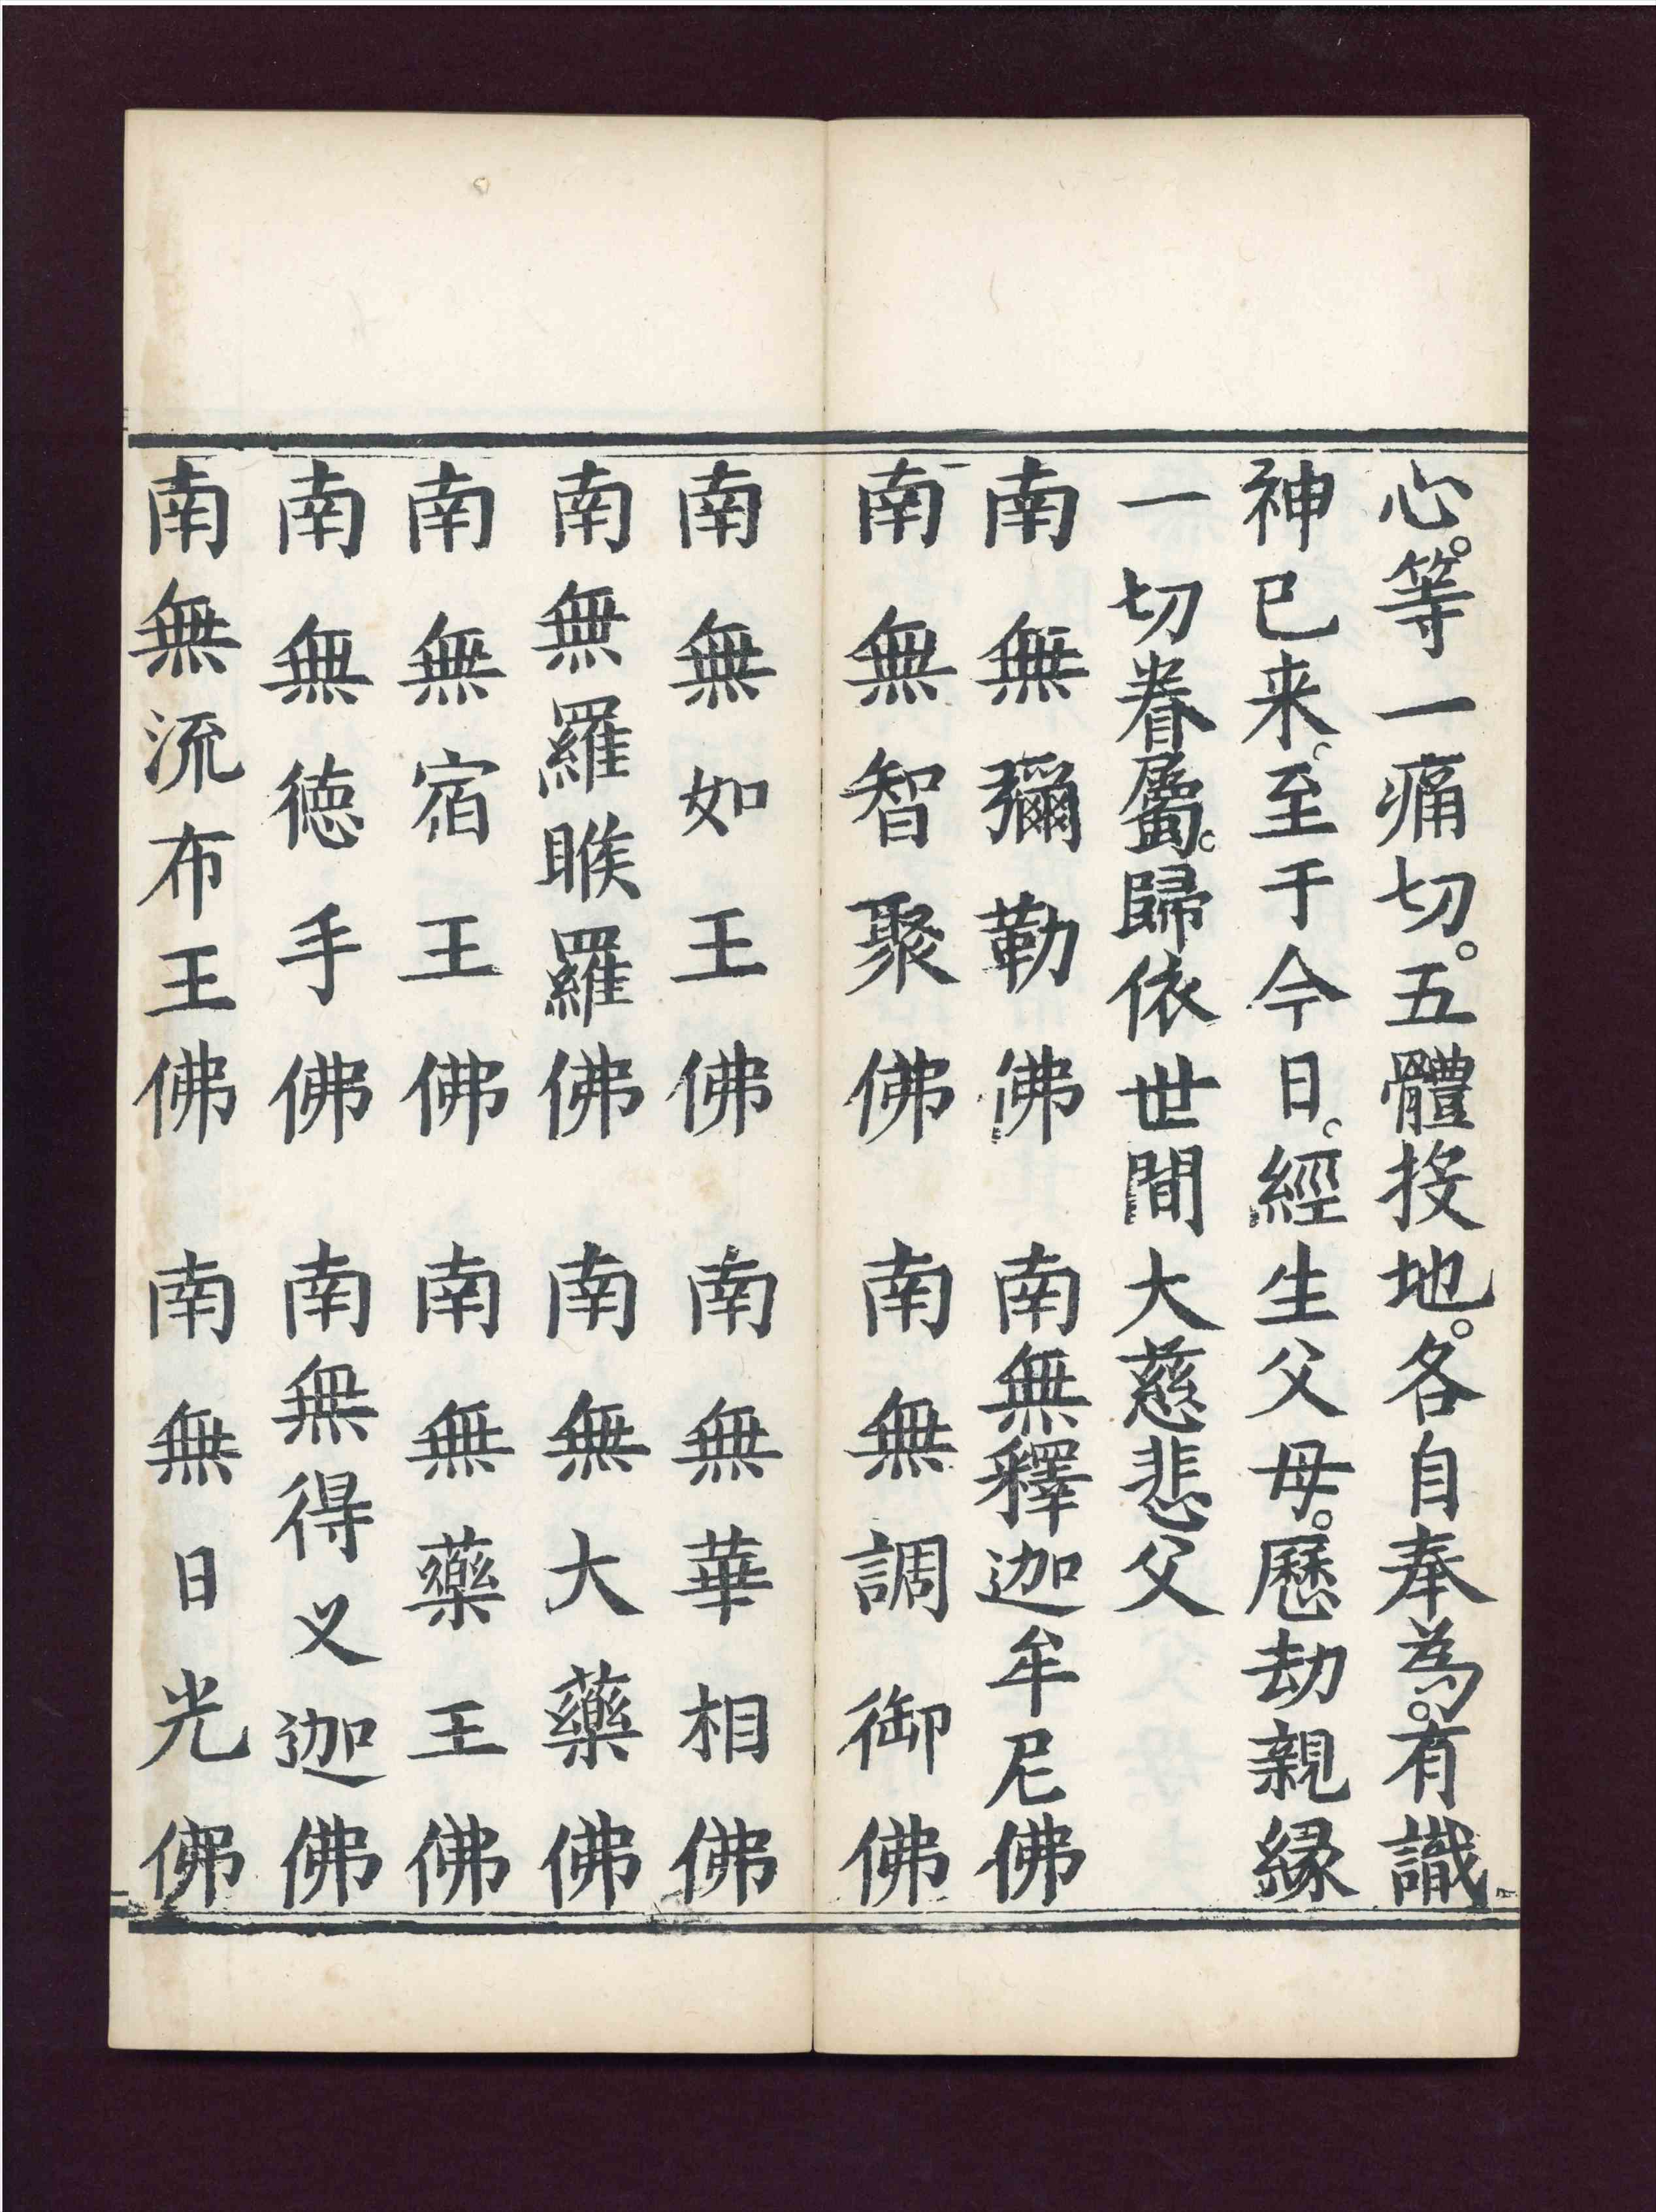 心。等一痛切。五體投地。各自奉為。有識
神已来。至于今日。經生父母。歷劫親緣
一切眷屬。歸依世間大慈悲父
南無彌勒佛　南無釋迦牟尼佛
南無智聚佛　南無調御佛
南無如王佛　南無華相佛
南無羅睺羅佛　南無大藥佛
南無宿王佛　南無藥王佛
南無德手佛　南無得叉迦佛
南無流布王佛　南無日光佛